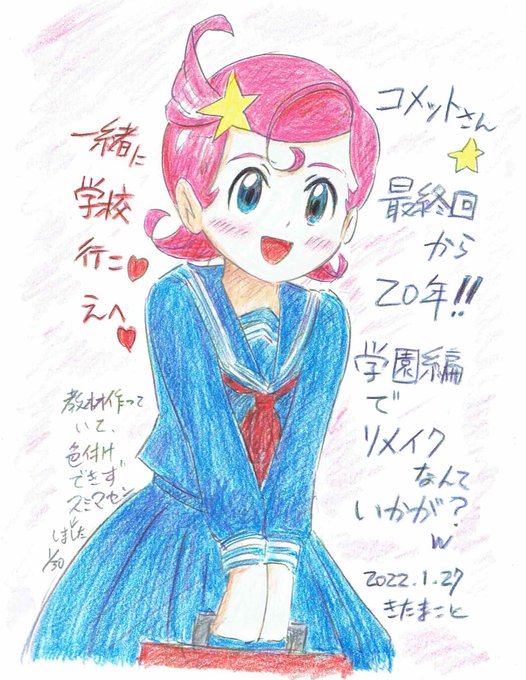 コメットさん
☆
最終回
から
20年!!
学園編
で
リメイク
なんて
いかが?
w
2022.1.27
きたまこと
一緒に
学校
行こ♥
えへ♥
教材作って
いて、
色付け
できず
スミマセン
しました
1/30